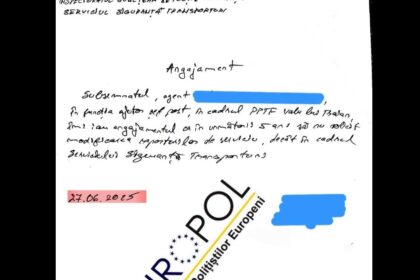 SERVICIUL SIGURANȚĂ TRANSPORTURI
Angajament
Subsemnatul, agent
în funcția ajutor șef post, în cadrul PPTF Valu lui Traian,
îmi iau angajamentul ca în următorii 5 ani să nu solicit
modificarea raporturilor de serviciu, decât în cadrul
Serviciului Siguranță Transporturi
27.06.2025
UROPOL
Polițiștilor Europeni